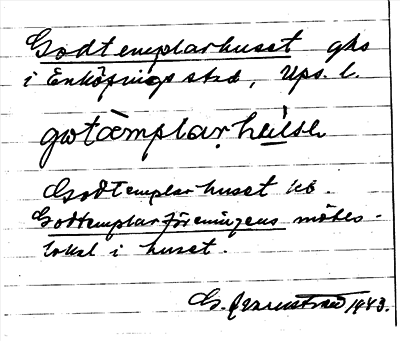 Godtemplarhuset ghs
i Enköpings stad, Ups. l.
gωtämplarhúsə
Godtemplarhuset kb.
Godtemplarföreningens mötes-
lokal i huset.
G. 1943.